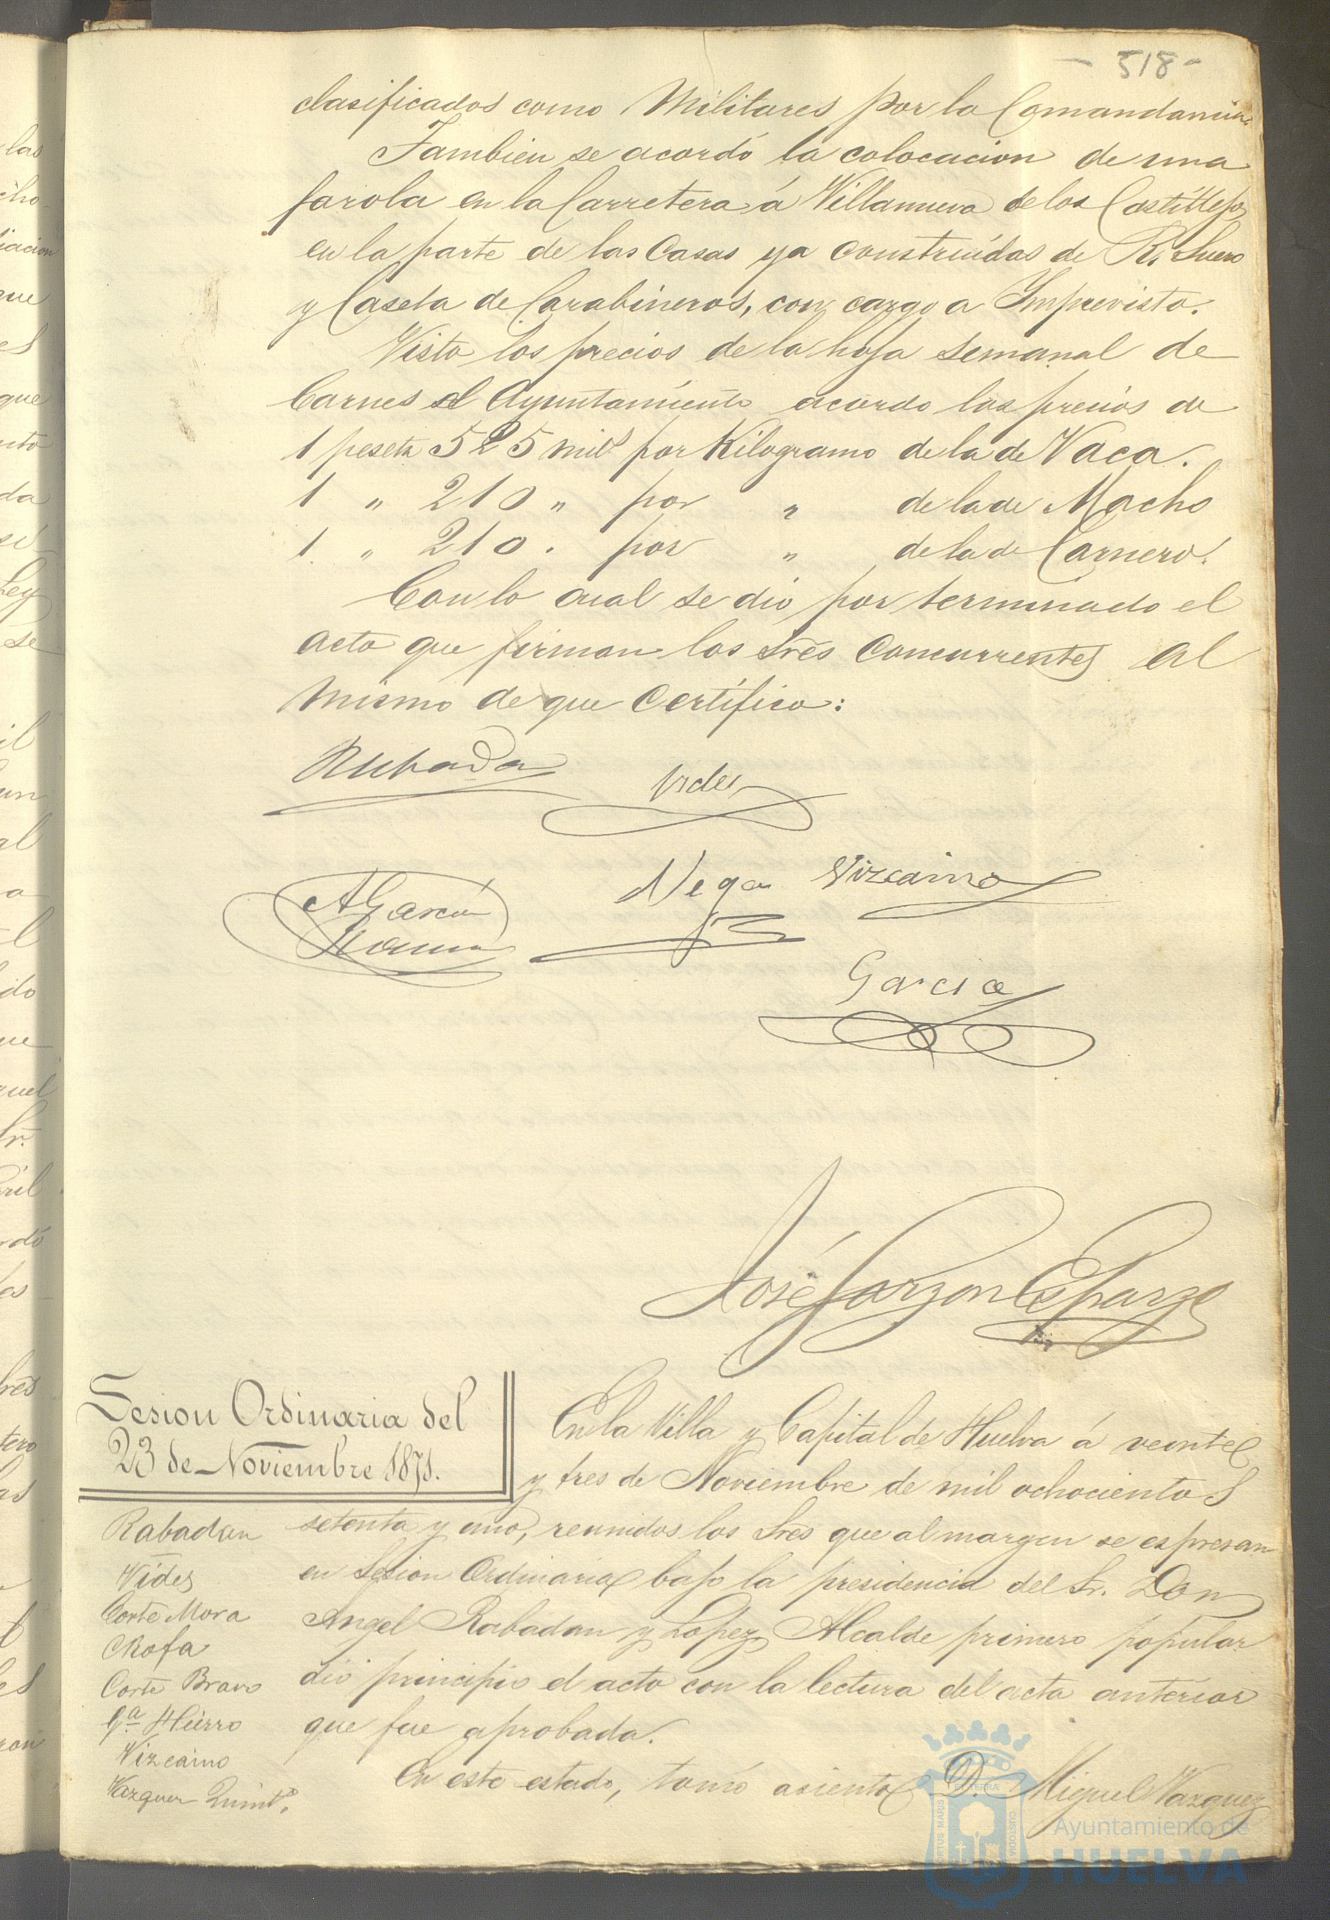 - 518 -
clasificados como Militares por la Comandancia
Tambien se acordó la colocacion de una
farola en la Carretera á Villanueva de los Castillejos
en la parte de las Casas ya construídas de R. Suero
y Caseta de Carabineros, con cargo a Imprevisto.
Visto los precios de la hoja semanal de
Carnes el Ayuntamiento acordo los precios de
1 peseta 525 mils por Kilogramo de la de Vaca.
1 " 210 " por " de la de Macho
1 " 210 . por " de la de Carnero.
Con lo cual se dió por terminado el
acto que firman los Sres Concurrentes al
mismo de que Certifico:
Rabadan
Vides
A Garcia
Vega Vizcaino
Garcia
José Garzon Esparza
Sesion Ordinaria del
23 de Noviembre 1871.
Rabadan
Vides
Corte Mora
Chofa
Corte Bravo
Ga Hierro
Vizcaino
Vazquez Quinto
En la Villa y Capital de Huelva á veinte
y tres de Noviembre de mil ochocientos
setenta y uno, reunidos los Sres que al margen se espresan
en Sesion Ordinaria bajo la presidencia del Sr. Don
Angel Rabadan y Lopez Alcalde primero popular
dió principio el acto con la lectura del acta anterior
que fue aprobada.
En este estado, tomó asiento D. Miguel Vazquez
Ayuntamiento de
HUELVA